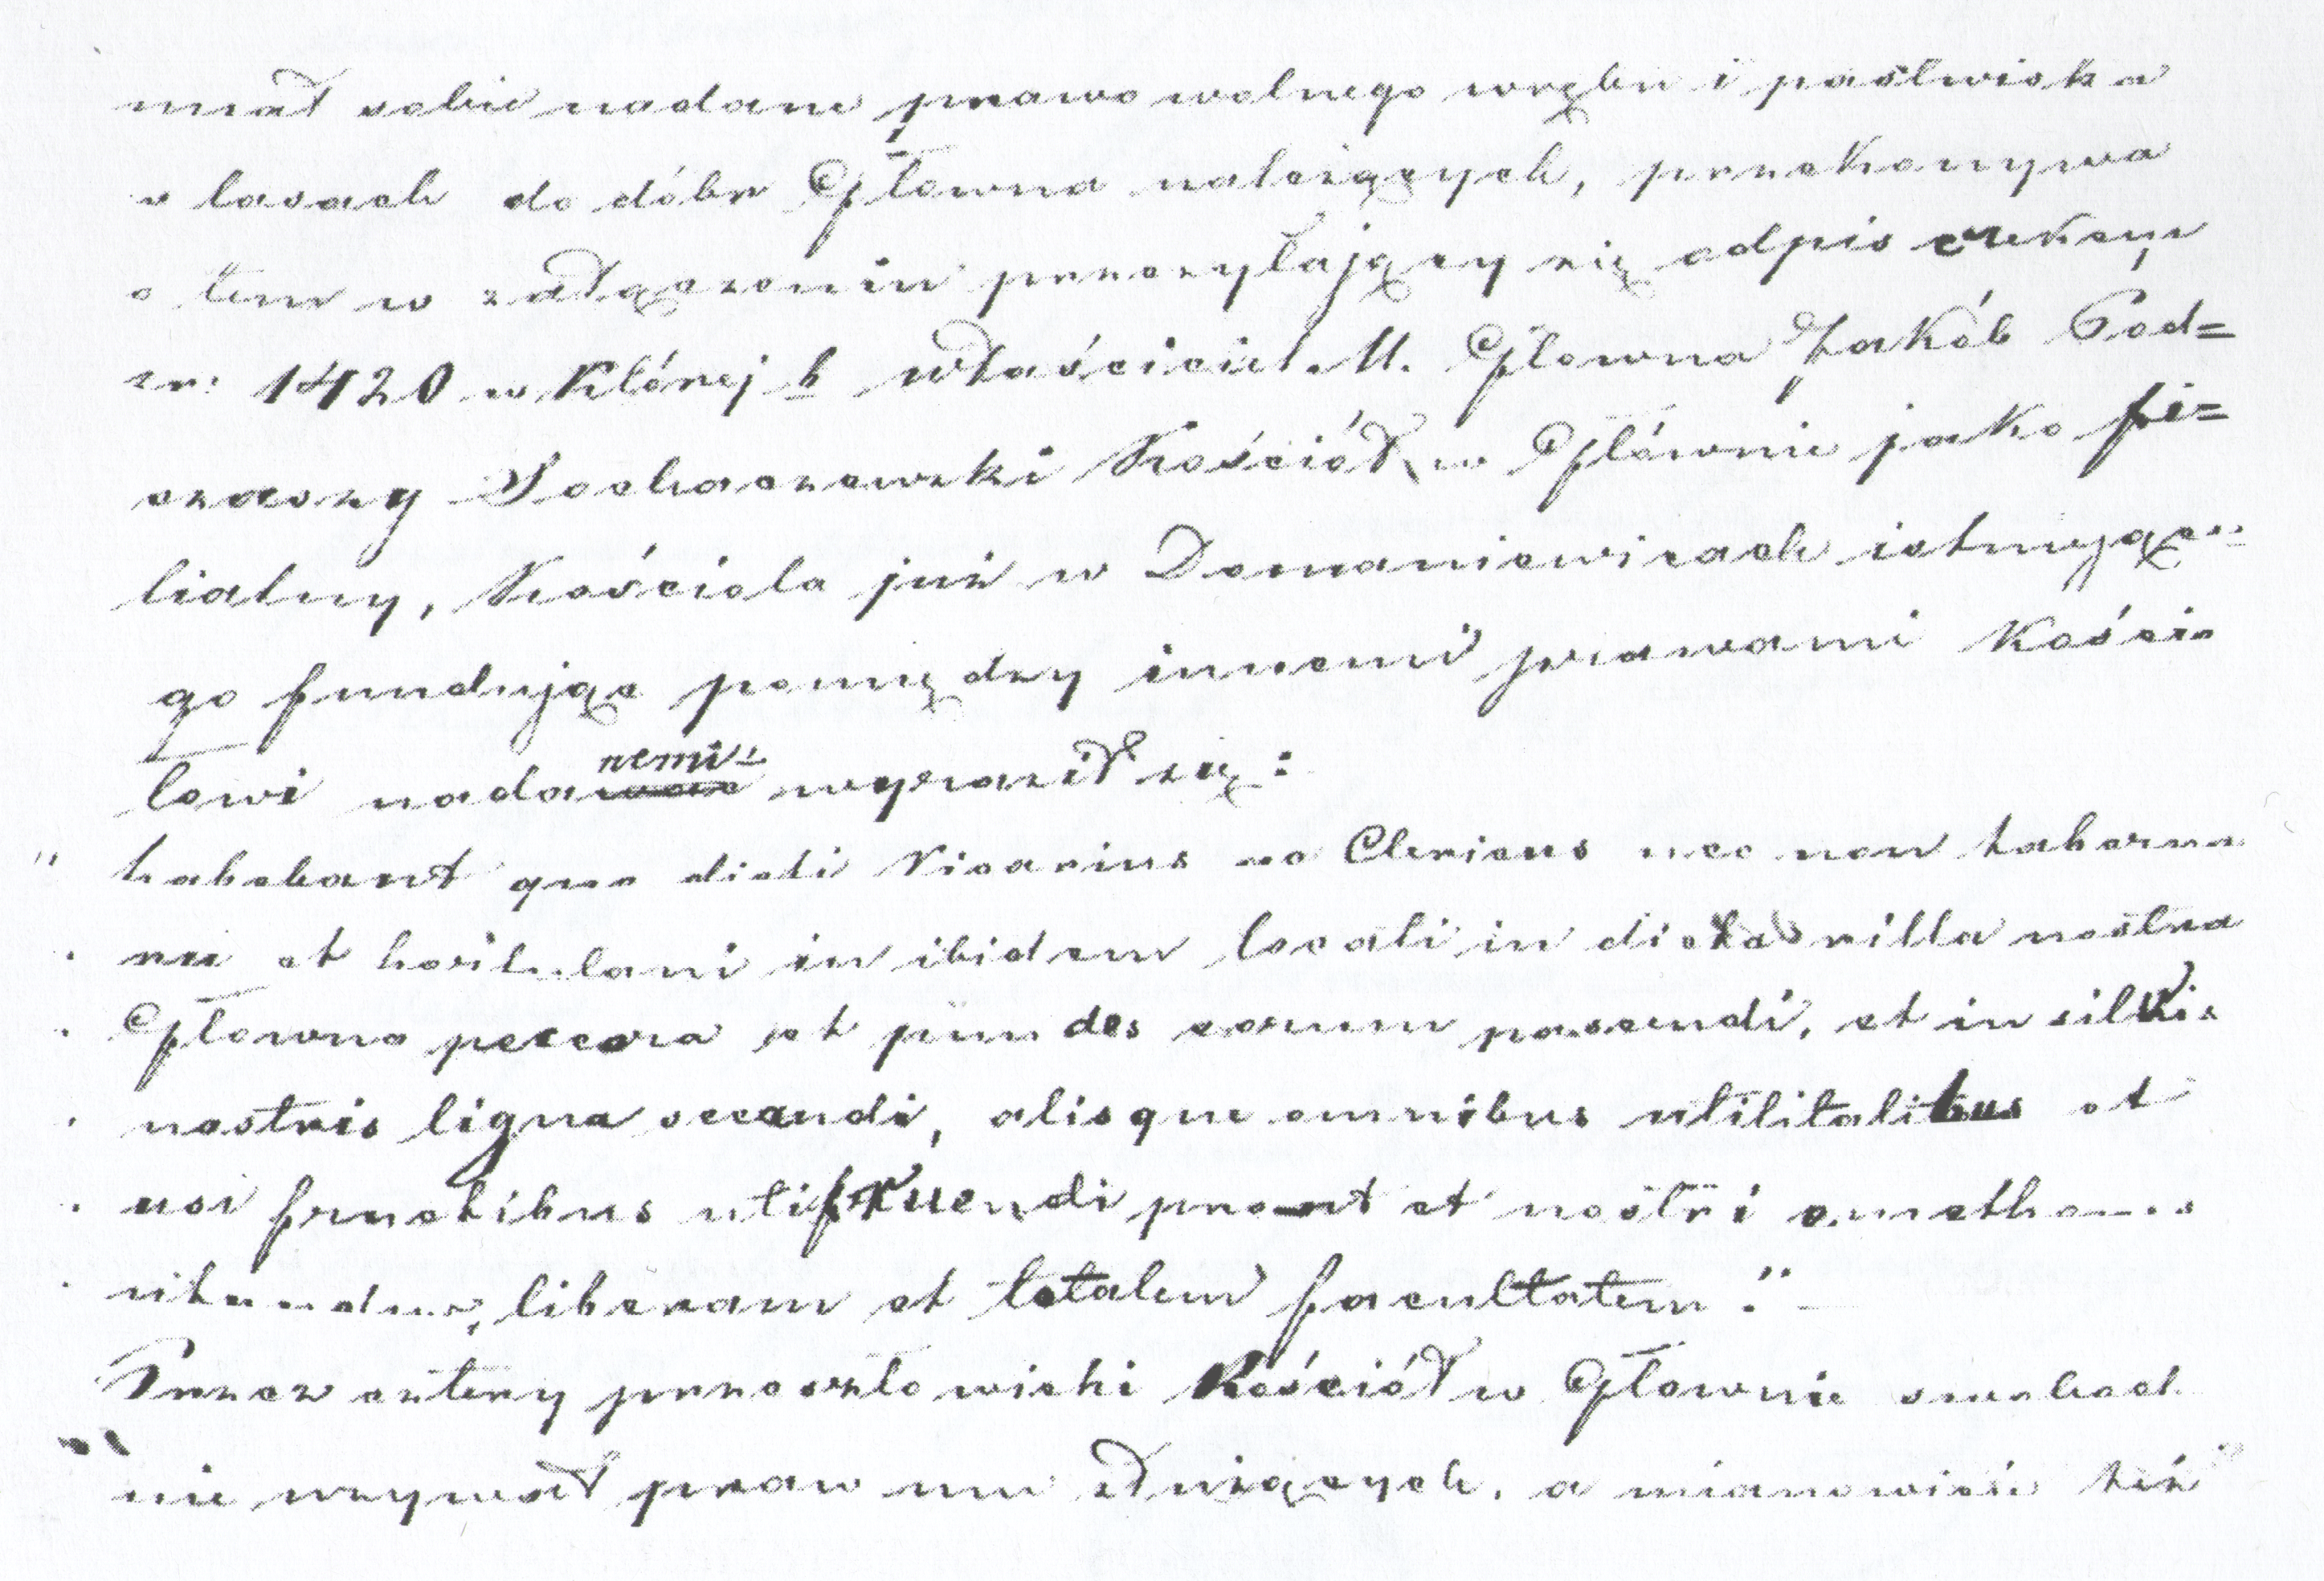 miał sobie nadane prawo wolnego wrębu i pastwiska
w lasach do dóbr Głowna należących, przekonywa
o tem w załączeniu przesyłający się odpis erekcyi
z r: 1420 w której b właściciel M. Głowna Jakób Pod=
czaszy Sochaczewski Kościół w Głównie jako fi=
lialny, Kościoła już w Domaniewicach istniejące=
go fundując pomiędzy innemi prawami Kościo
łowi nadanemi wyraził się:
" habebant que dicti Vicarius ac Clericus nec non taberna
rii et hortulani in ibidem locati in dicta villa nostra
Głowno peccora et pecudes eorum pascendi, et in silvis
nostris ligna secandi, alisque omnibus utilitatibus et
usi fructibus utifruendi prout et nostri cmethones
utuntur, liberam et totalem facultatem."
Przez cztery przeszło wieki Kościół w Głownie swobod
nie używał praw mu służących, a mianowicie też